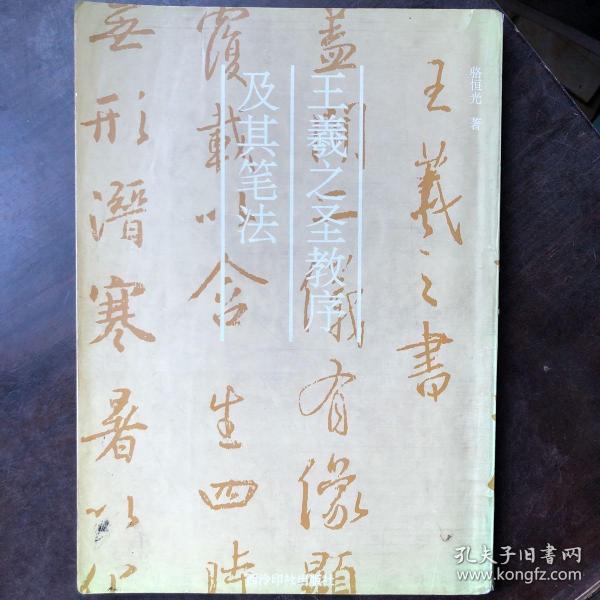 骆恒光 著
王羲之圣教序
及其笔法
王羲之書
盖闻二儀有像顯
覆載以含生四時
無形潛寒暑以化
西泠印社出版社
孔夫子旧書网
www.kongfz.com